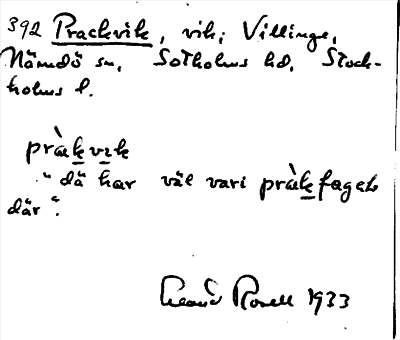 392 Prackvik, vik; Villinge,
Nämdö sn, Sotholms hd, Stock-
holms l.
pràkvɩk
"dä har väl vari pràkfaget
där".
Rosell 1933